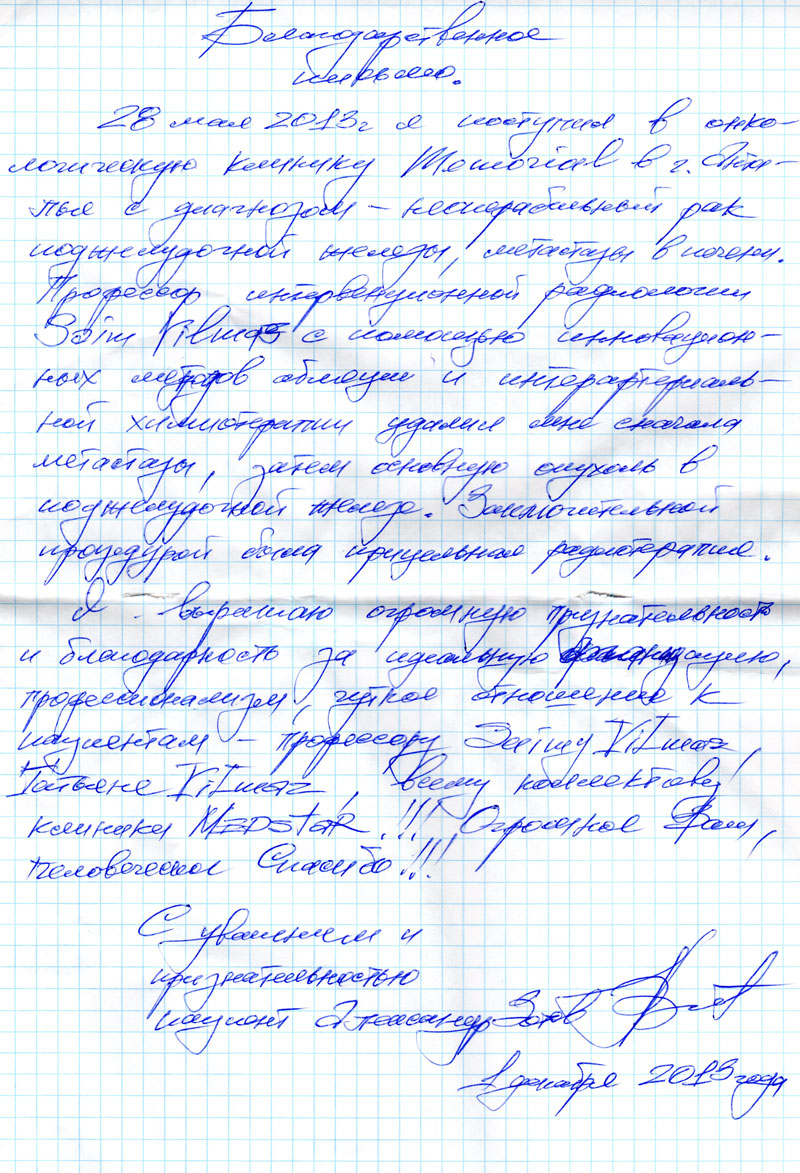 Благодарственное
письмо.
28 мая 2013г я поступил в онко-
логическую клинику Memorial в г. Анта-
лья с диагнозом - неоперабильный рак
поджелудочной железы, метастазы в печени.
Профессор интервенционной радиологии
Saim Yilmaz с помощью инновацион-
ных методов абляции и интерартериаль-
ной химиотерапии удалил мне сначала
метастазы, затем основную опухоль в
поджелудочной железе. Заключительной
процедурой была прицельная радиотерапия.
Я выражаю огромную признательность
и благодарность за идеальную
профессионализм, чуткое отношение к
пациентам - профессору Saimу Yilmaz,
Татьяне Yilmaz, всему коллективу
клиники MEDSTAR!!! Огромное Вам,
человеческое Спасибо!!!
С уважением и
признательностью
пациент Александр Зотов
1 декабря 2013 года